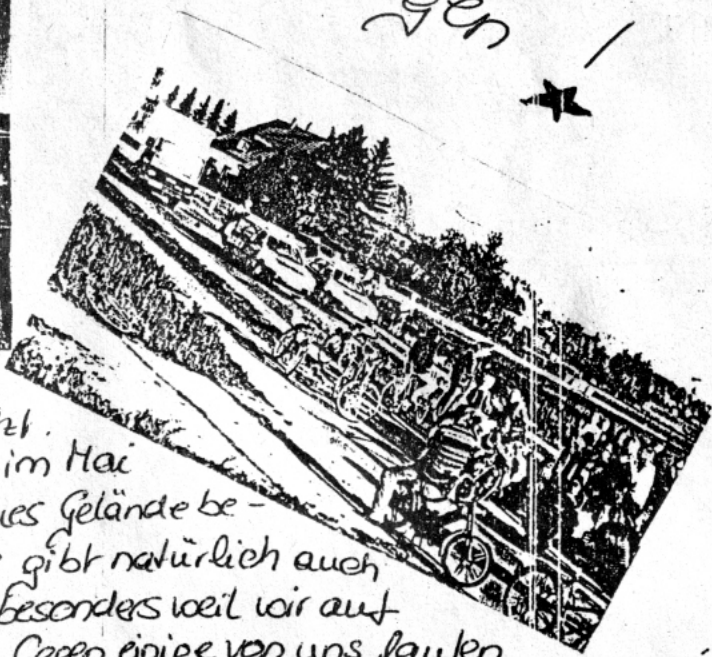 gen !
zt.
im Mai
es Gelände be-
gibt natürlich auch
besonders weil wir auf
Gegen einige von uns laufen